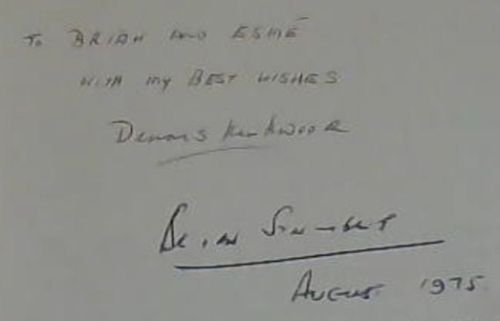 To BRIAN AND ESMÉ
WITH my BEST WISHES
Dennis Kirkwood
BRIAN
AUGUST 1975